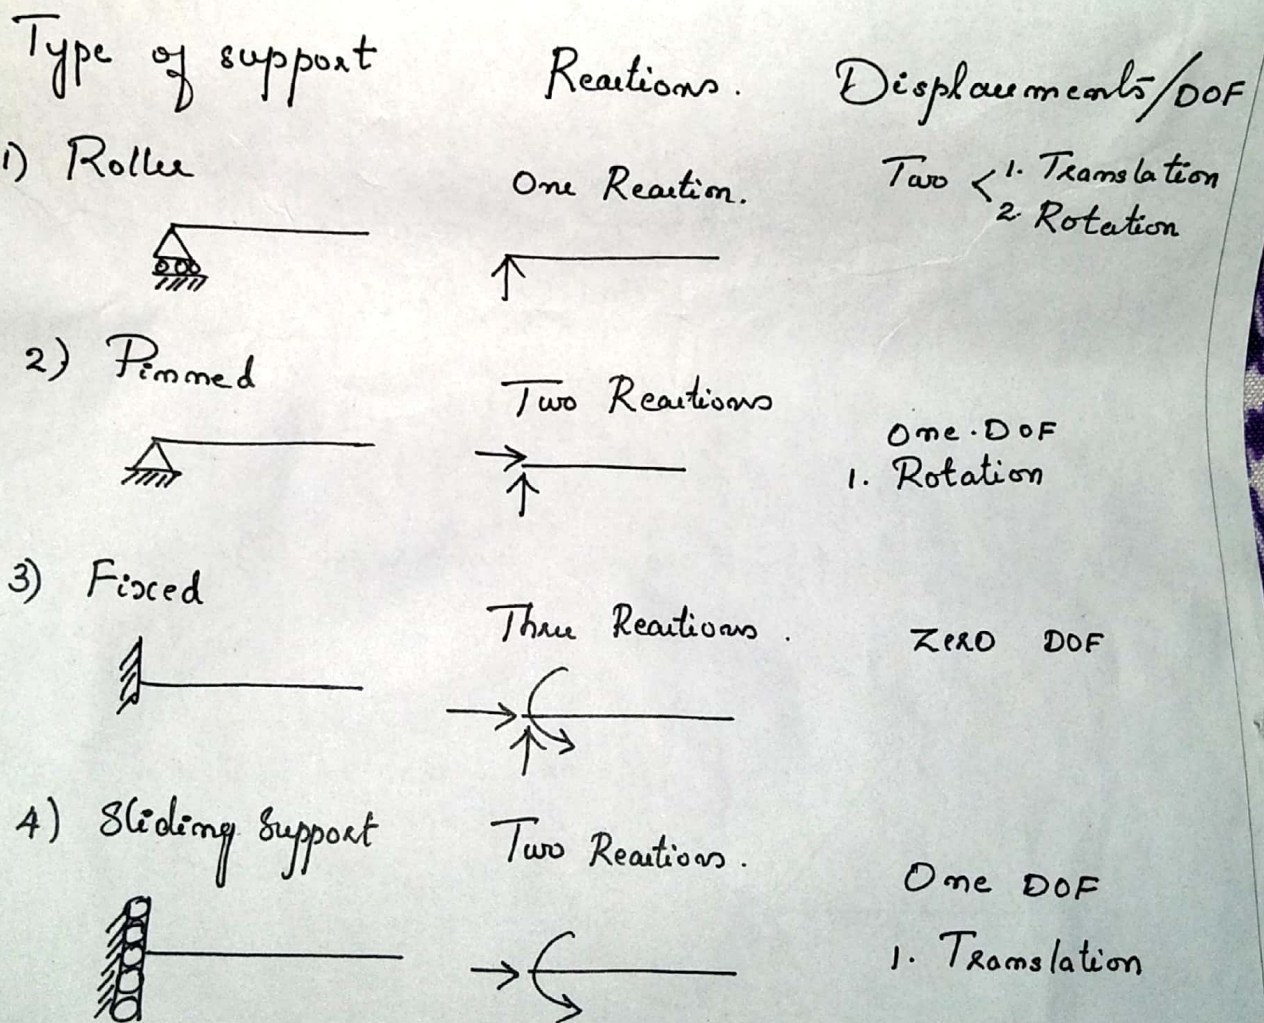 Type of support
Reactions.
Displacements/DOF
1) Roller
One Reaction.
Two < 1. Translation
2. Rotation
2) Pinned
Two Reactions
One. DOF
1. Rotation
3) Fixed
Three Reactions.
ZERO DOF
4) Sliding Support
Two Reactions.
One DOF
1. Translation